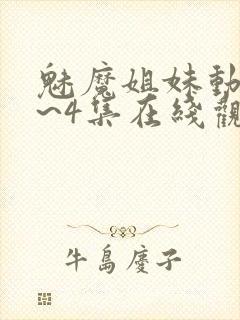 魅魔姐妹動
~4集在綫觀
牛島慶子